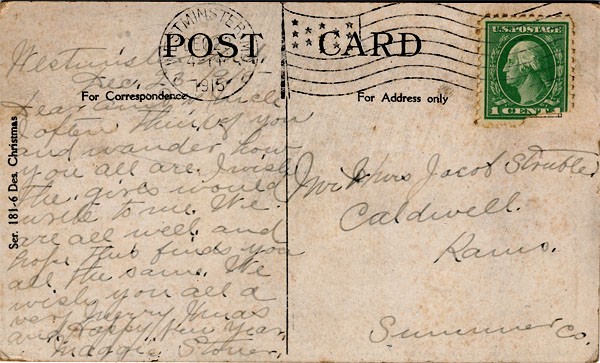 WESTMINSTER
1915
POST CARD
U.S. POSTAGE
1 CENT
For Correspondence
For Address only
Ser. 181-6 Des. Christmas
Westminster
Dec.
Dear and Uncle
I often think of you
and wander how
you all are. I wish
the girls would
write to me. We
are all well and
hope this finds you
all the same. We
wish you all a
very merry Xmas
and Happy New Year.
Maggie Stoner.
Mr & Mrs Jacob Strubler
Caldwell.
Kans.
Summer Co.